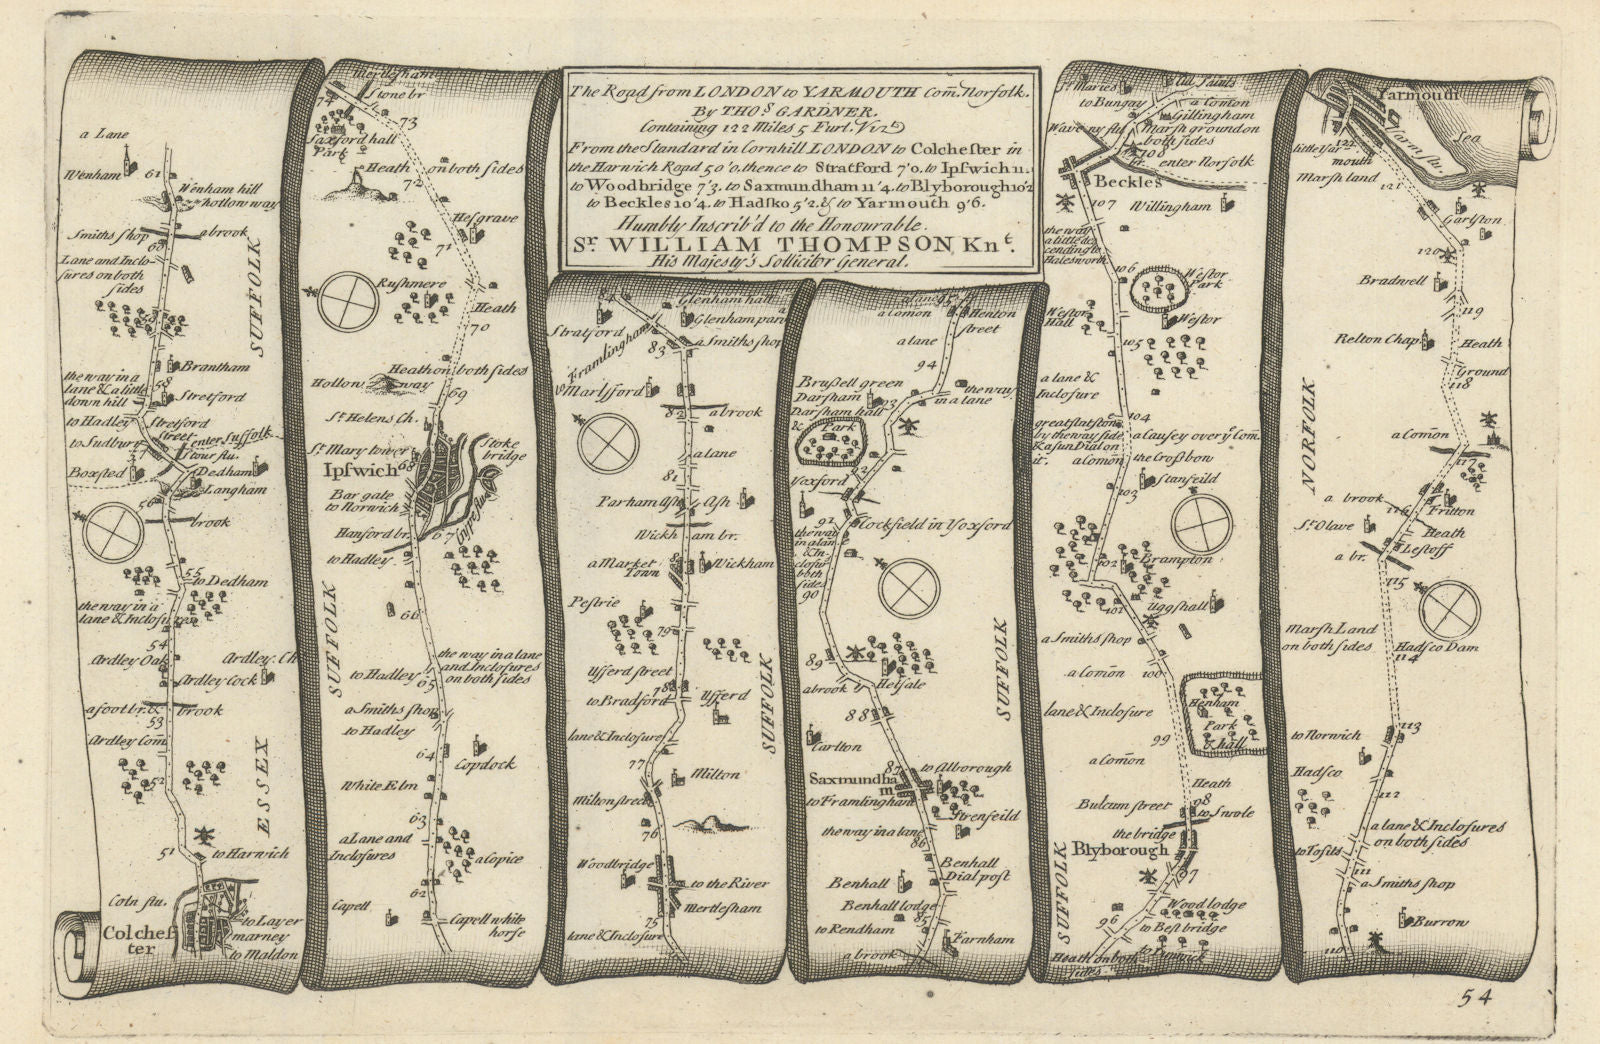 The Road from LONDON to YARMOUTH Com. Norfolk.
By THO.S GARDNER.
Containing 122 Miles 5 Furl. Viz.
From the Standard in Cornhill LONDON to Colchester in
the Harwich Road 50'0. thence to Stratford 7'0. to Ipswich 11.
to Woodbridge 7'3. to Saxmundham 11'4. to Blyborough 10'2
to Beckles 10'4. to Hadsko 5'2. & to Yarmouth 9'6.
Humbly Inscrib'd to the Honourable.
Sr. WILLIAM THOMPSON, Knt.
His Majesty's Sollicitor General.
a Lane
Wenham
61
Wenham hill
hollow way
Smiths shop
a brook
60
Lane and Inclo-
sures on both
sides
SUFFOLK
Brantham
the way in a
lane & a little
down hill
58
Stretford
to Hadley
Stretford
Street
to Sudbury
enter Suffolk
Stour flu.
57
Boxsted
Dedham
Langham
56
brook
55
to Dedham
the way in a
lane & Inclosures
54
Ardley Oak
Ardley Ch
Ardley Cock
a foot br. &
brook
53
Ardley Com
52
ESSEX
51
to Harwich
Coln flu.
Colches
ter
to Layer
marney
to Maldon
Mertlesham
74
Stone br
73
Saxford hall
Park
a Heath
on both sides
72
Hesgrave
71
Rushmere
Heath
70
Heath on both sides
Hollow way
69
St. Helens Ch.
St. Mary tower
Stoke
bridge
68
Ipswich
Bar gate
to Norwich
Hanford br.
67
to Hadley
66
SUFFOLK
the way in a lane
and Inclosures
on both sides
to Hadley
65
a Smiths shop
to Hadley
64
Copdock
White Elm
63
a Lane and
Inclosures
a Copice
62
Capell
Capell white
horse
Glenham hall
Glenham park
Stratford
to Framlingham
83
a Smiths shop
Marlsford
82
a brook
a lane
81
Parham Ash
Ash
Wickham br.
80
a Market
Town
Wickham
Pestrie
79
Ufferd street
78
to Bradford
Ufferd
SUFFOLK
lane & Inclosure
77
Milton
Milton street
76
Woodbridge
to the River
Mertlesham
75
lane & Inclosure
a lane
95
a Comon
Henton
street
a lane
94
Brussell green
Darsham
93
the way
in a lane
Darsham hall
&
Park
92
Yoxford
91
Cockfield in Yoxford
the way
in a lane
& In-
closure
both
sides
90
SUFFOLK
89
Kelsale
a brook
88
Carlton
87
to Alborough
Saxmundha
m
to Framlingham
Strenfeild
the way in a lane
86
Benhall
Dial post
Benhall
Benhall lodge
85
to Rendham
Farnham
a brook
St. Maries
All Saints
to Bungay
a Comon
Gillingham
Waveny flu.
Marsh ground on
both sides
108
br.
enter Norfolk
Beckles
107
Willingham
the way
a little des
cending to
Halesworth
106
Westor
Park
Westor
Hall
Westor
105
a lane &
Inclosure
104
great flat stone
by the way side
& a sun Dial on
it.
a Causey over ye. Com.
a Comon
the Crossbow
103
Stanfeild
102
Brampton
101
Uggshall
a Smiths shop
a Comon
100
lane & Inclosure
Henham
Park
& hall
99
a Comon
Heath
98
Bulcum street
to Swole
the bridge
Blyborough
97
SUFFOLK
Wood lodge
96
to Best bridge
Heath on both
sides
Yarmouth
122
little Yar
mouth
Yarm flu.
Sea
Marsh land
121
Garlston
120
Bradwell
119
Relton Chap.
Heath
Ground
118
NORFOLK
a Comon
117
a brook
116
Fritton
St. Olave
Heath
a br.
Lestoff
115
Marsh Land
on both sides
Hadsco Dam
114
113
to Norwich
Hadsco
112
a lane & Inclosures
on both sides
to Tofits
111
a Smiths shop
Burrow
110
54